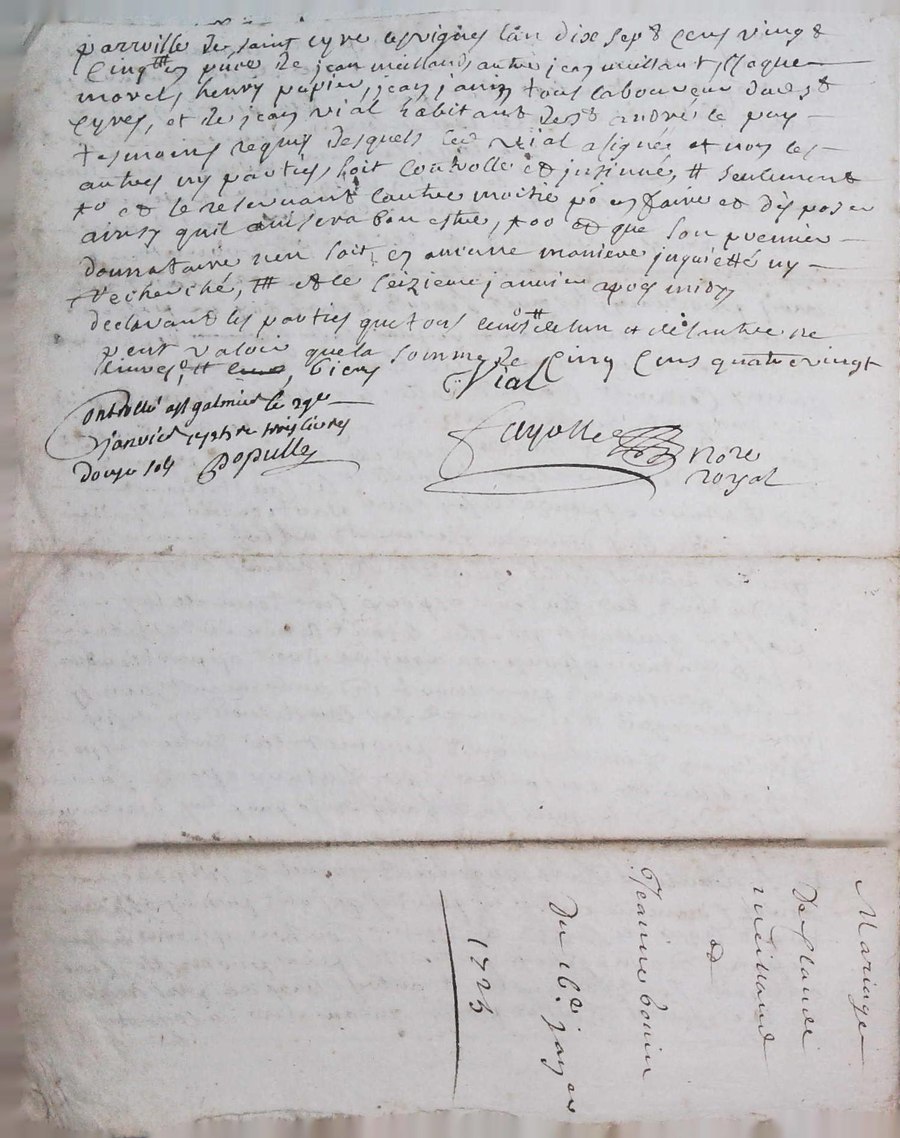 parroisse de saint cyre les vignes l'an dix sept cens vingt
cinq en pnce de jean meilland, autre jean meilland, Claque
morel, henry papier, jean janin tous laboureur dud st
cyres, et de jean vial habitant de st andré le puy
tesmoins requis desquels led vial a signé et non les
autres ny parties, soit controllé et insinué, # seulement
to et se reservant l'autre moitié po en faire et disposer
ainsy quil avisera bon estre, too et que son premier
donnataire n'en soit en aucune maniere inquietté ny
recherché, ### et le seizieme janvier apres midy
declarant les parties que tous leurs de l'un et de l'autre ne
peut valoir que la somme de cinq cens quatre vingt
livres, # biens
Vial
Controllé a st galmier le 29e
janvier reçu trois livres
douze sols
Fayolle nore
royal
Mariage
De Claude
meilland
et
Jeanne bonin
Du 16e janver
1725